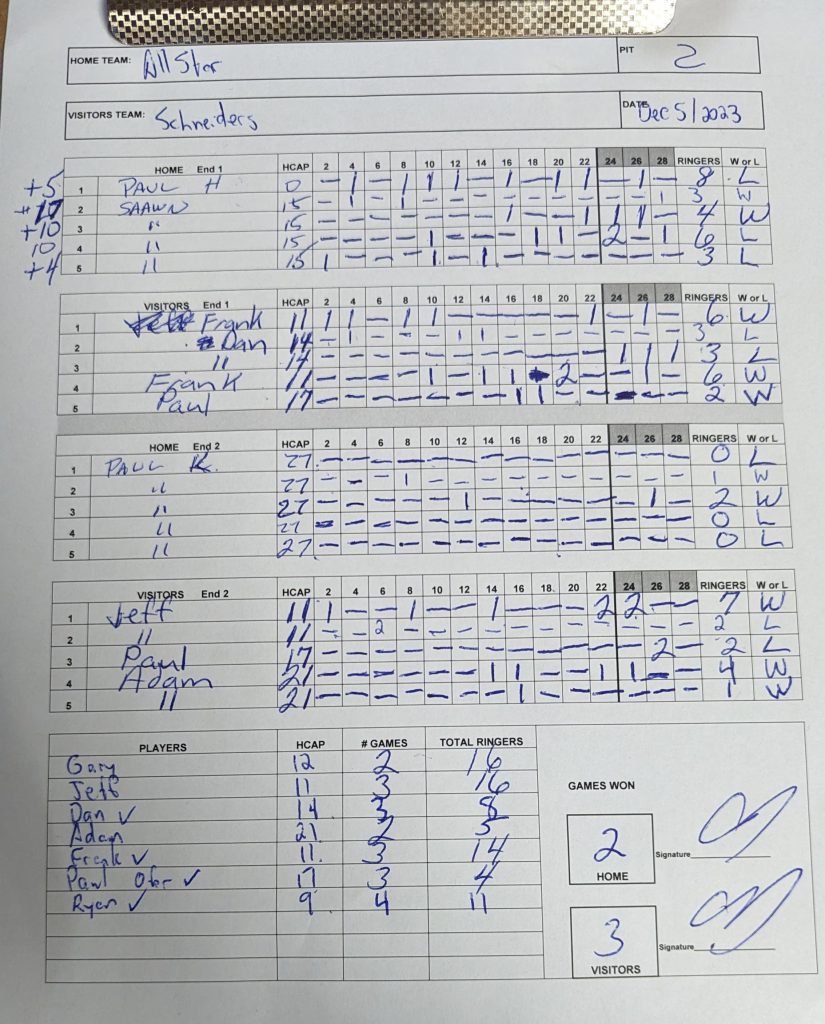 HOME TEAM: All Star PIT 2
VISITORS TEAM: Schneiders DATE Dec 5/2023
HOME End 1 HCAP 2 4 6 8 10 12 14 16 18 20 22 24 26 28 RINGERS W or L
+5 1 PAUL H 0 - 1 - 1 1 1 - 1 - 1 1 - 1 - 8 L
+17 2 SAAWN 15 - 1 - 1 - - - - - - - - - 1 3 W
+10 3 " 15 - - - - - - - 1 - - 1 1 1 - 4 W
10 4 " 15 - - - - 1 - - - 1 1 - 2 - 1 6 L
+4 5 " 15 1 - - - 1 - 1 - - - - - - - 3 L
VISITORS End 1 HCAP 2 4 6 8 10 12 14 16 18 20 22 24 26 28 RINGERS W or L
1 Frank 11 1 1 - 1 1 - - - - - 1 - 1 - 6 W
2 Dan 14 - 1 - - - 1 1 - - - - - - - 3 L
3 " 14 - - - - - - - - - - - 1 1 1 3 L
4 Frank 11 - - - - 1 - 1 1 - 2 - - 1 - 6 W
5 Paul 17 - - - - - - - 1 1 - - - - - 2 W
HOME End 2 HCAP 2 4 6 8 10 12 14 16 18 20 22 24 26 28 RINGERS W or L
1 PAUL K. 27 - - - - - - - - - - - - - - 0 L
2 " 27 - - - 1 - - - - - - - - - - 1 W
3 " 27 - - - - - 1 - - - - - - 1 - 2 W
4 " 27 - - - - - - - - - - - - - - 0 L
5 " 27 - - - - - - - - - - - - - - 0 L
VISITORS End 2 HCAP 2 4 6 8 10 12 14 16 18 20 22 24 26 28 RINGERS W or L
1 Jeff 11 1 - - 1 - - 1 - - - 2 2 - - 7 W
2 " 11 - - 2 - - - - - - - - - - - 2 L
3 Paul 17 - - - - - - - - - - - - 2 - 2 L
4 Adam 21 - - - - - - 1 1 - - 1 1 - - 4 W
5 " 21 - - - - - - - 1 - - - - - - 1 W
PLAYERS HCAP # GAMES TOTAL RINGERS
Gary 12 2 16
Jeff 11 3 16
Dan ✓ 14 3 8
Adam 21 2 5
Frank ✓ 11 3 14
Paul Ofer ✓ 17 3 4
Ryan ✓ 9 4 11
GAMES WON
2 Signature
HOME
3 Signature
VISITORS